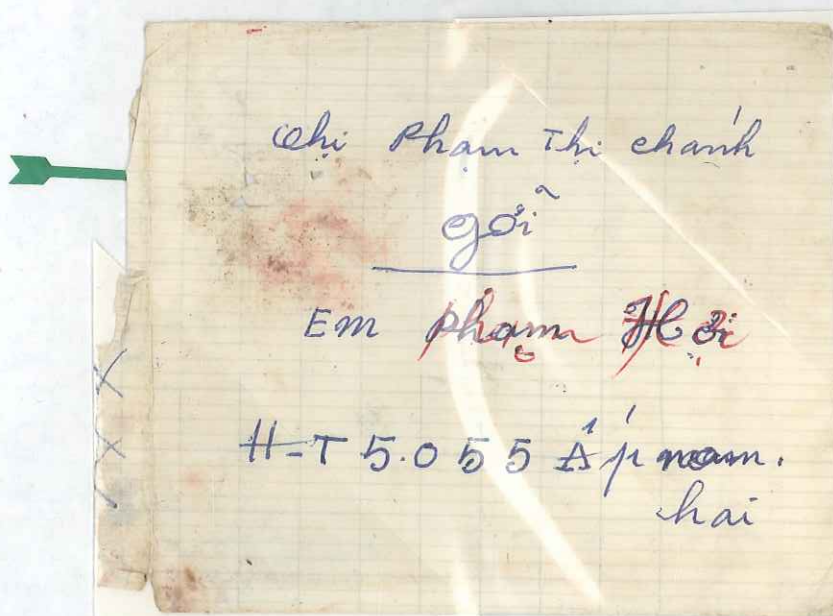 chị Phạm Thị chánh
gởi
Em Phạm Hợi
H-T 5.055 Ấp nam.
hai